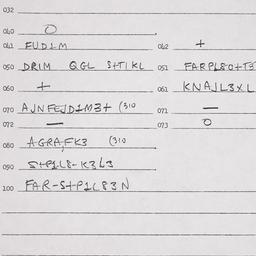 032
040 O
041 FUD1M 042 +
050 DRIM QGL S+TIKL 051 FARP180+T3
060 + 061 KNAJL3XL
070 AJNFEJD1M3+ (310 071 —
072 — 073 O
080 AGRA,FK3 (310
090 S+P1L8-K3L3
100 FAR-S+P1L83N